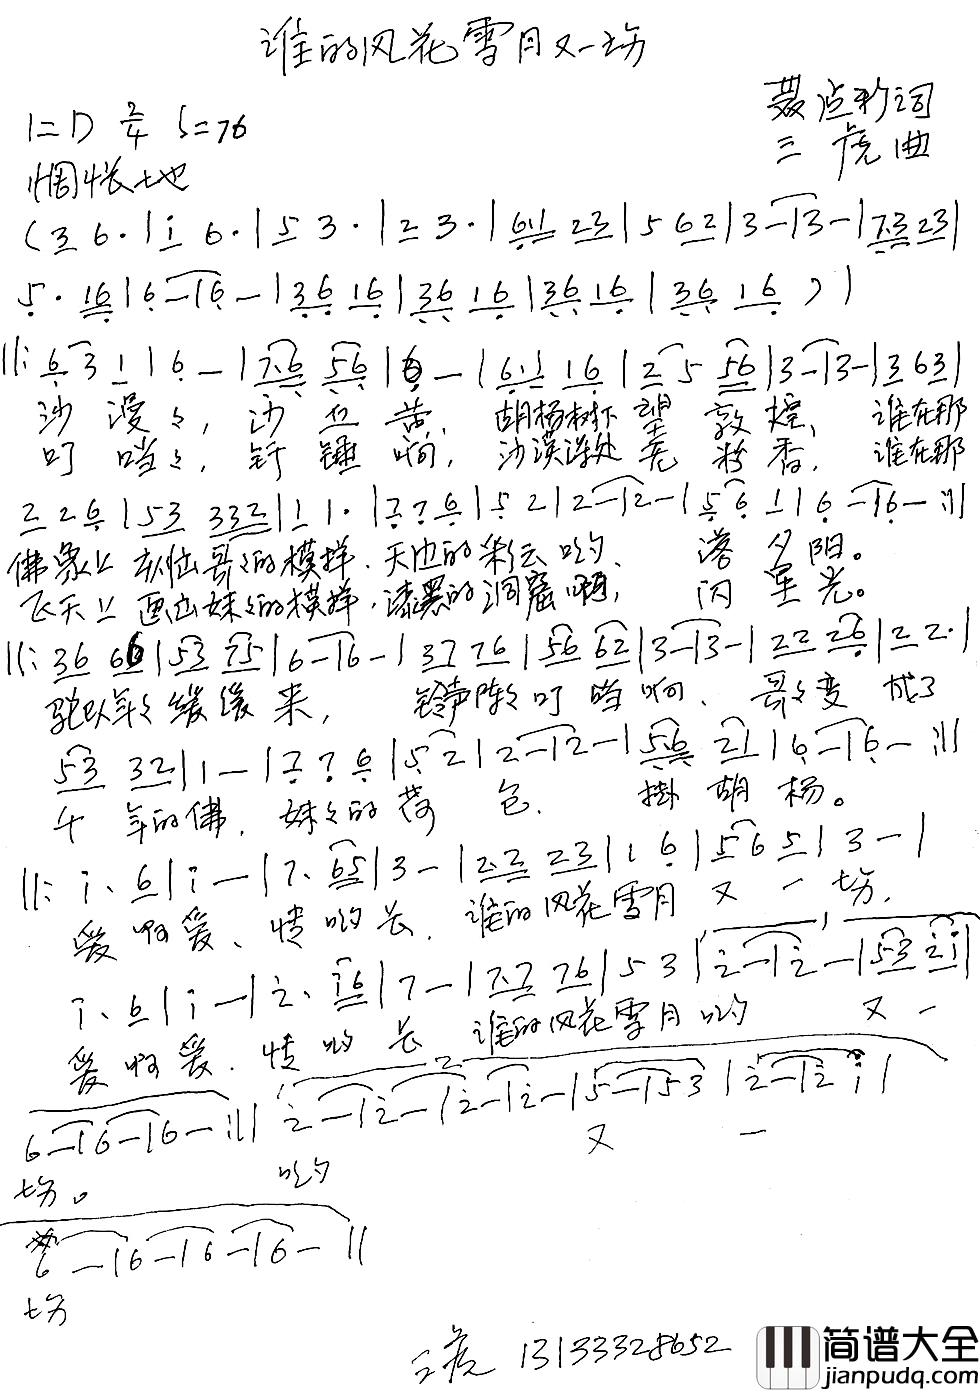 谁的风花雪月又一场
聂点彩词
1=D 2/4 ♩=76
三虎曲
惆怅地
(3 6·|i 6·|5 3·|2 3·|6·1 2 3|5 6 2|3-|3-|7·3 2 3|
5·1 6|6-|6-|3 6 1 6|3 6 1 6|3 6 1 6|3 6 1 6)|
||:6 3 1|6-|7·6 5 6|6-|6·1 1 6|2 5 5 6|3-|3-|3 6 3|
沙漫々，沙 苦，胡杨树下望敦煌，谁在那
叮当々，钎锤啊，沙漠深处 香，谁在那
2 2 6|5 3 3 3 2|1 1·|7 7 6|5 2|2-|2-|5 6 1|6-|6-:||
佛象上 哥々的模样，天边的彩云哟，落夕阳。
飞天上画出妹々的模样，漆黑的洞窟啊，闪星光。
||:3 6 6 6|5 3 7 5|6-|6-|3 7 7 6|5 6 6 2|3-|3-|2 2 2 6|2 2·|
驼队年々缓缓来，铃声阵々叮当啊，哥々变成了
5 3 3 2|1-|7 7 6|5 2|2-|2-|5 6 2 1|6-|6-:||
千年的佛，妹々的荷包，掛胡杨。
||:i·6|i-|7·6 5|3-|2·2 2 3|1 6|5 6 5|3-|
爱啊爱，情哟长，谁的风花雪月又一场，
i·6|i-|2·i 6|7-|7·7 7 6|5 3|2-|2-|5 3 2 i|
爱啊爱，情哟长 谁的风花雪月哟 又一
6-|6-|6-:||2-|2-|2-|2-|5-|5 3|2-|2 i|
场。 哟 又 一
6-|6-|6-|6-||
场
三虎 13133328652
简谱大全
jianpudq.com